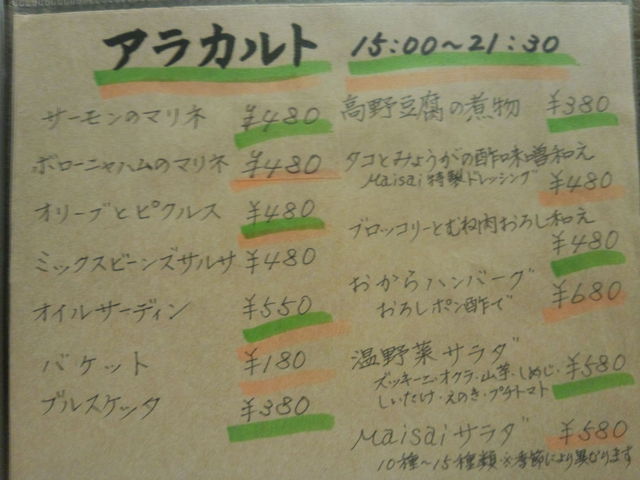 アラカルト 15:00～21:30
サーモンのマリネ ¥480
ボローニャハムのマリネ ¥480
オリーブとピクルス ¥480
ミックスビーンズサルサ ¥480
オイルサーディン ¥550
バケット ¥180
ブルスケッタ ¥380
高野豆腐の煮物 ¥380
タコとみょうがの酢味噌和え
Maisai特製ドレッシング ¥480
ブロッコリーとむね肉おろし和え
¥480
おからハンバーグ ¥680
おろしポン酢で
温野菜サラダ ¥580
ズッキーニ・オクラ・山芋・しめじ・
しいたけ・えのき・プチトマト
Maisaiサラダ ¥580
10種～15種類・※季節により異なります